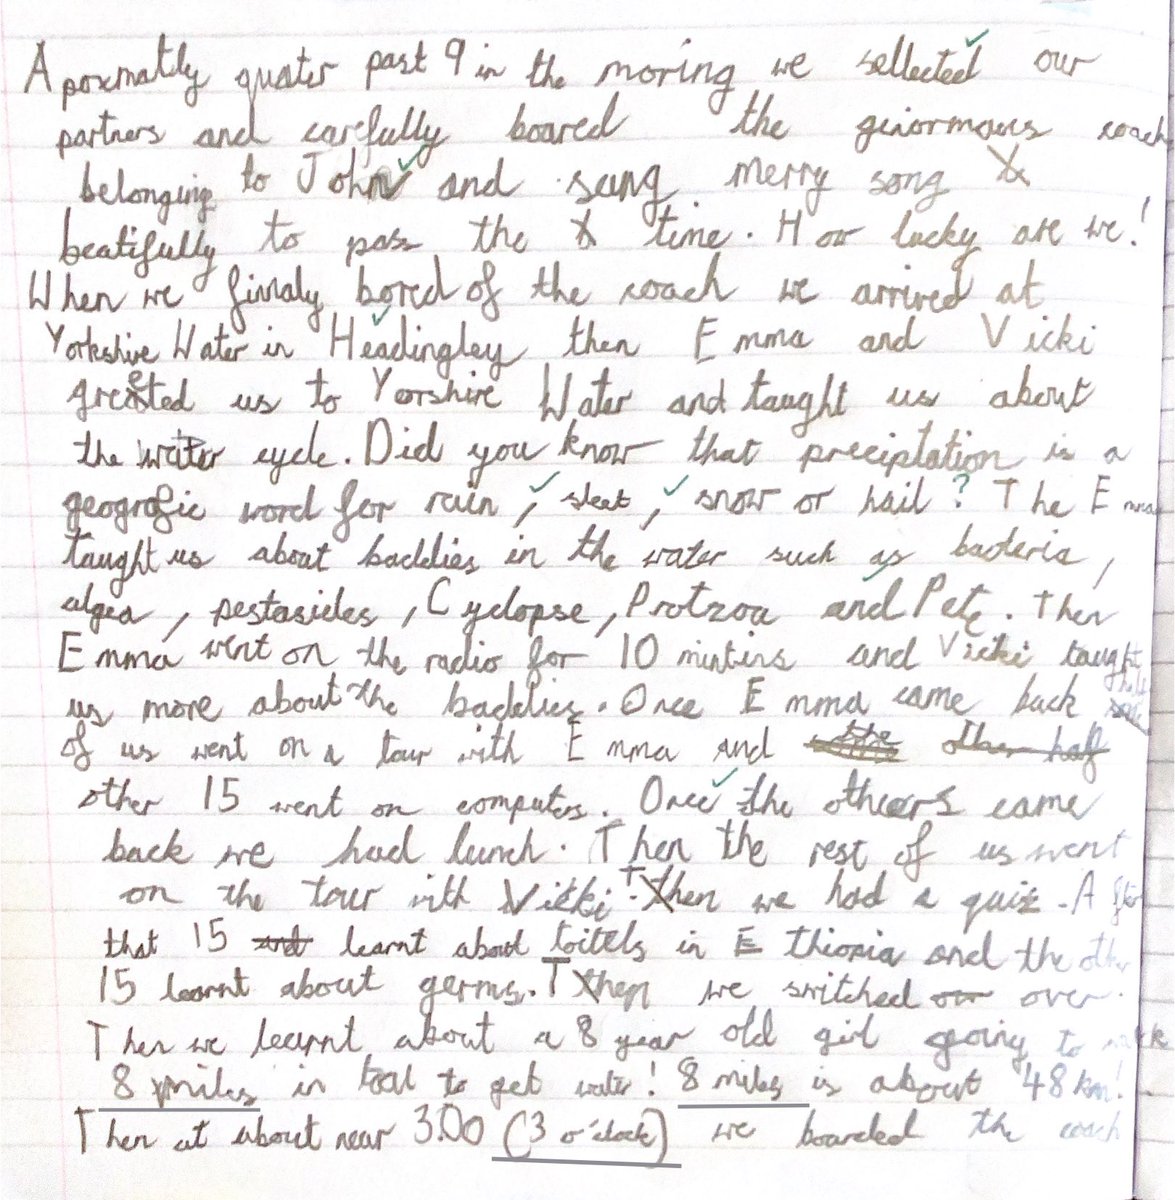 Apoxmatily quater past 9 in the moring we sellected our
partners and carefully boared the ginormous coach
belonging to John and sung merry song
beatifully to pass the time. How lucky are we!
When we finnaly bored of the coach we arrived at
Yorkshire Water in Headingley then Emma and Vicki
greeted us to Yorshire Water and taught us about
the water cycle. Did you know that preciptation is a
geografic word for rain, sleet, snow or hail? The Emma
taught us about baddies in the water such as bacteria,
algea, pestasides, Cyclopse, Protzoa and Pete. Then
Emma went on the radio for 10 mintins and Vicki taught
us more about the baddies. Once Emma came back half
of us went on a tour with Emma and the other half
other 15 went on computers. Once the others came
back we had lunch. Then the rest of us went
on the tour with Vicki. Then we had a quiz. After
that 15 and learnt about toitels in Ethiopia and the other
15 learnt about germs. Then we switched our over.
Then we learnt about a 8 year old girl going to walk
8 miles in toal to get water! 8 miles is about 48 km!
Then at about near 3:00 (3 o'clock) we boarded the coach